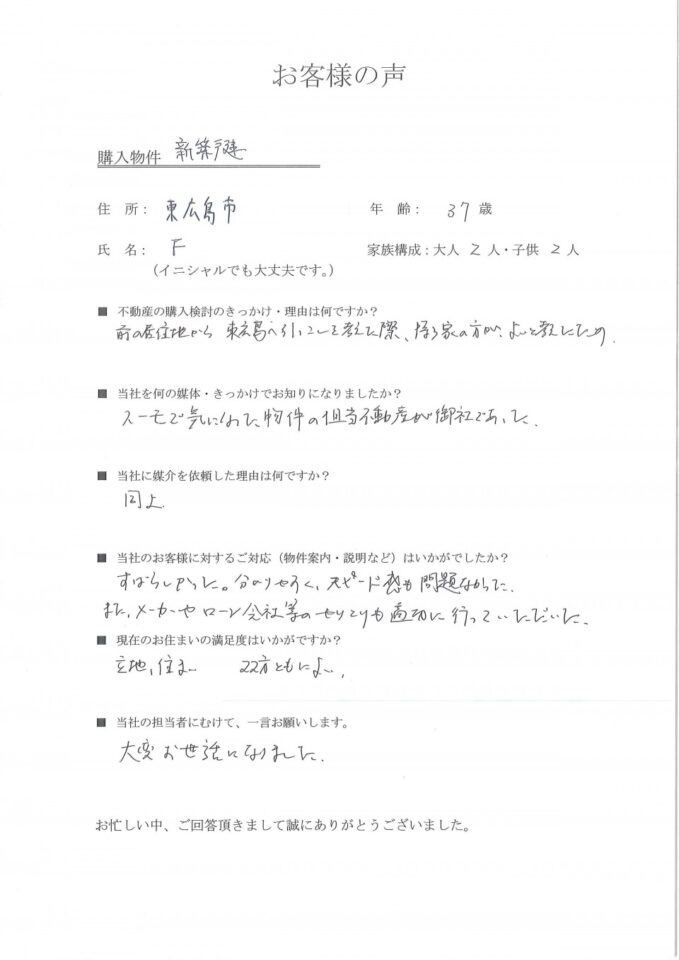 お客様の声
購入物件 新築戸建
住 所: 東広島市 年 齢: 37 歳
氏 名: F 家族構成:大人 2 人・子供 2 人
(イニシャルでも大丈夫です。)
■ 不動産の購入検討のきっかけ・理由は何ですか?
前の居住地から 東広島へ引っこしを考えた際、持ち家の方が、よいと考えたため
■ 当社を何の媒体・きっかけでお知りになりましたか?
スーモで気になった物件の担当不動産が御社であった.
■ 当社に媒介を依頼した理由は何ですか?
同上.
■ 当社のお客様に対するご対応(物件案内・説明など)はいかがでしたか?
すばらしかった。分かりやすく、スピード感も問題なかった.
また、メーカーや ローン会社等のやりとりも適切に行っていただいた.
■ 現在のお住まいの満足度はいかがですか?
立地、住まい 方ともによい.
■ 当社の担当者にむけて、一言お願いします。
大変お世話になりました.
お忙しい中、ご回答頂きまして誠にありがとうございました。